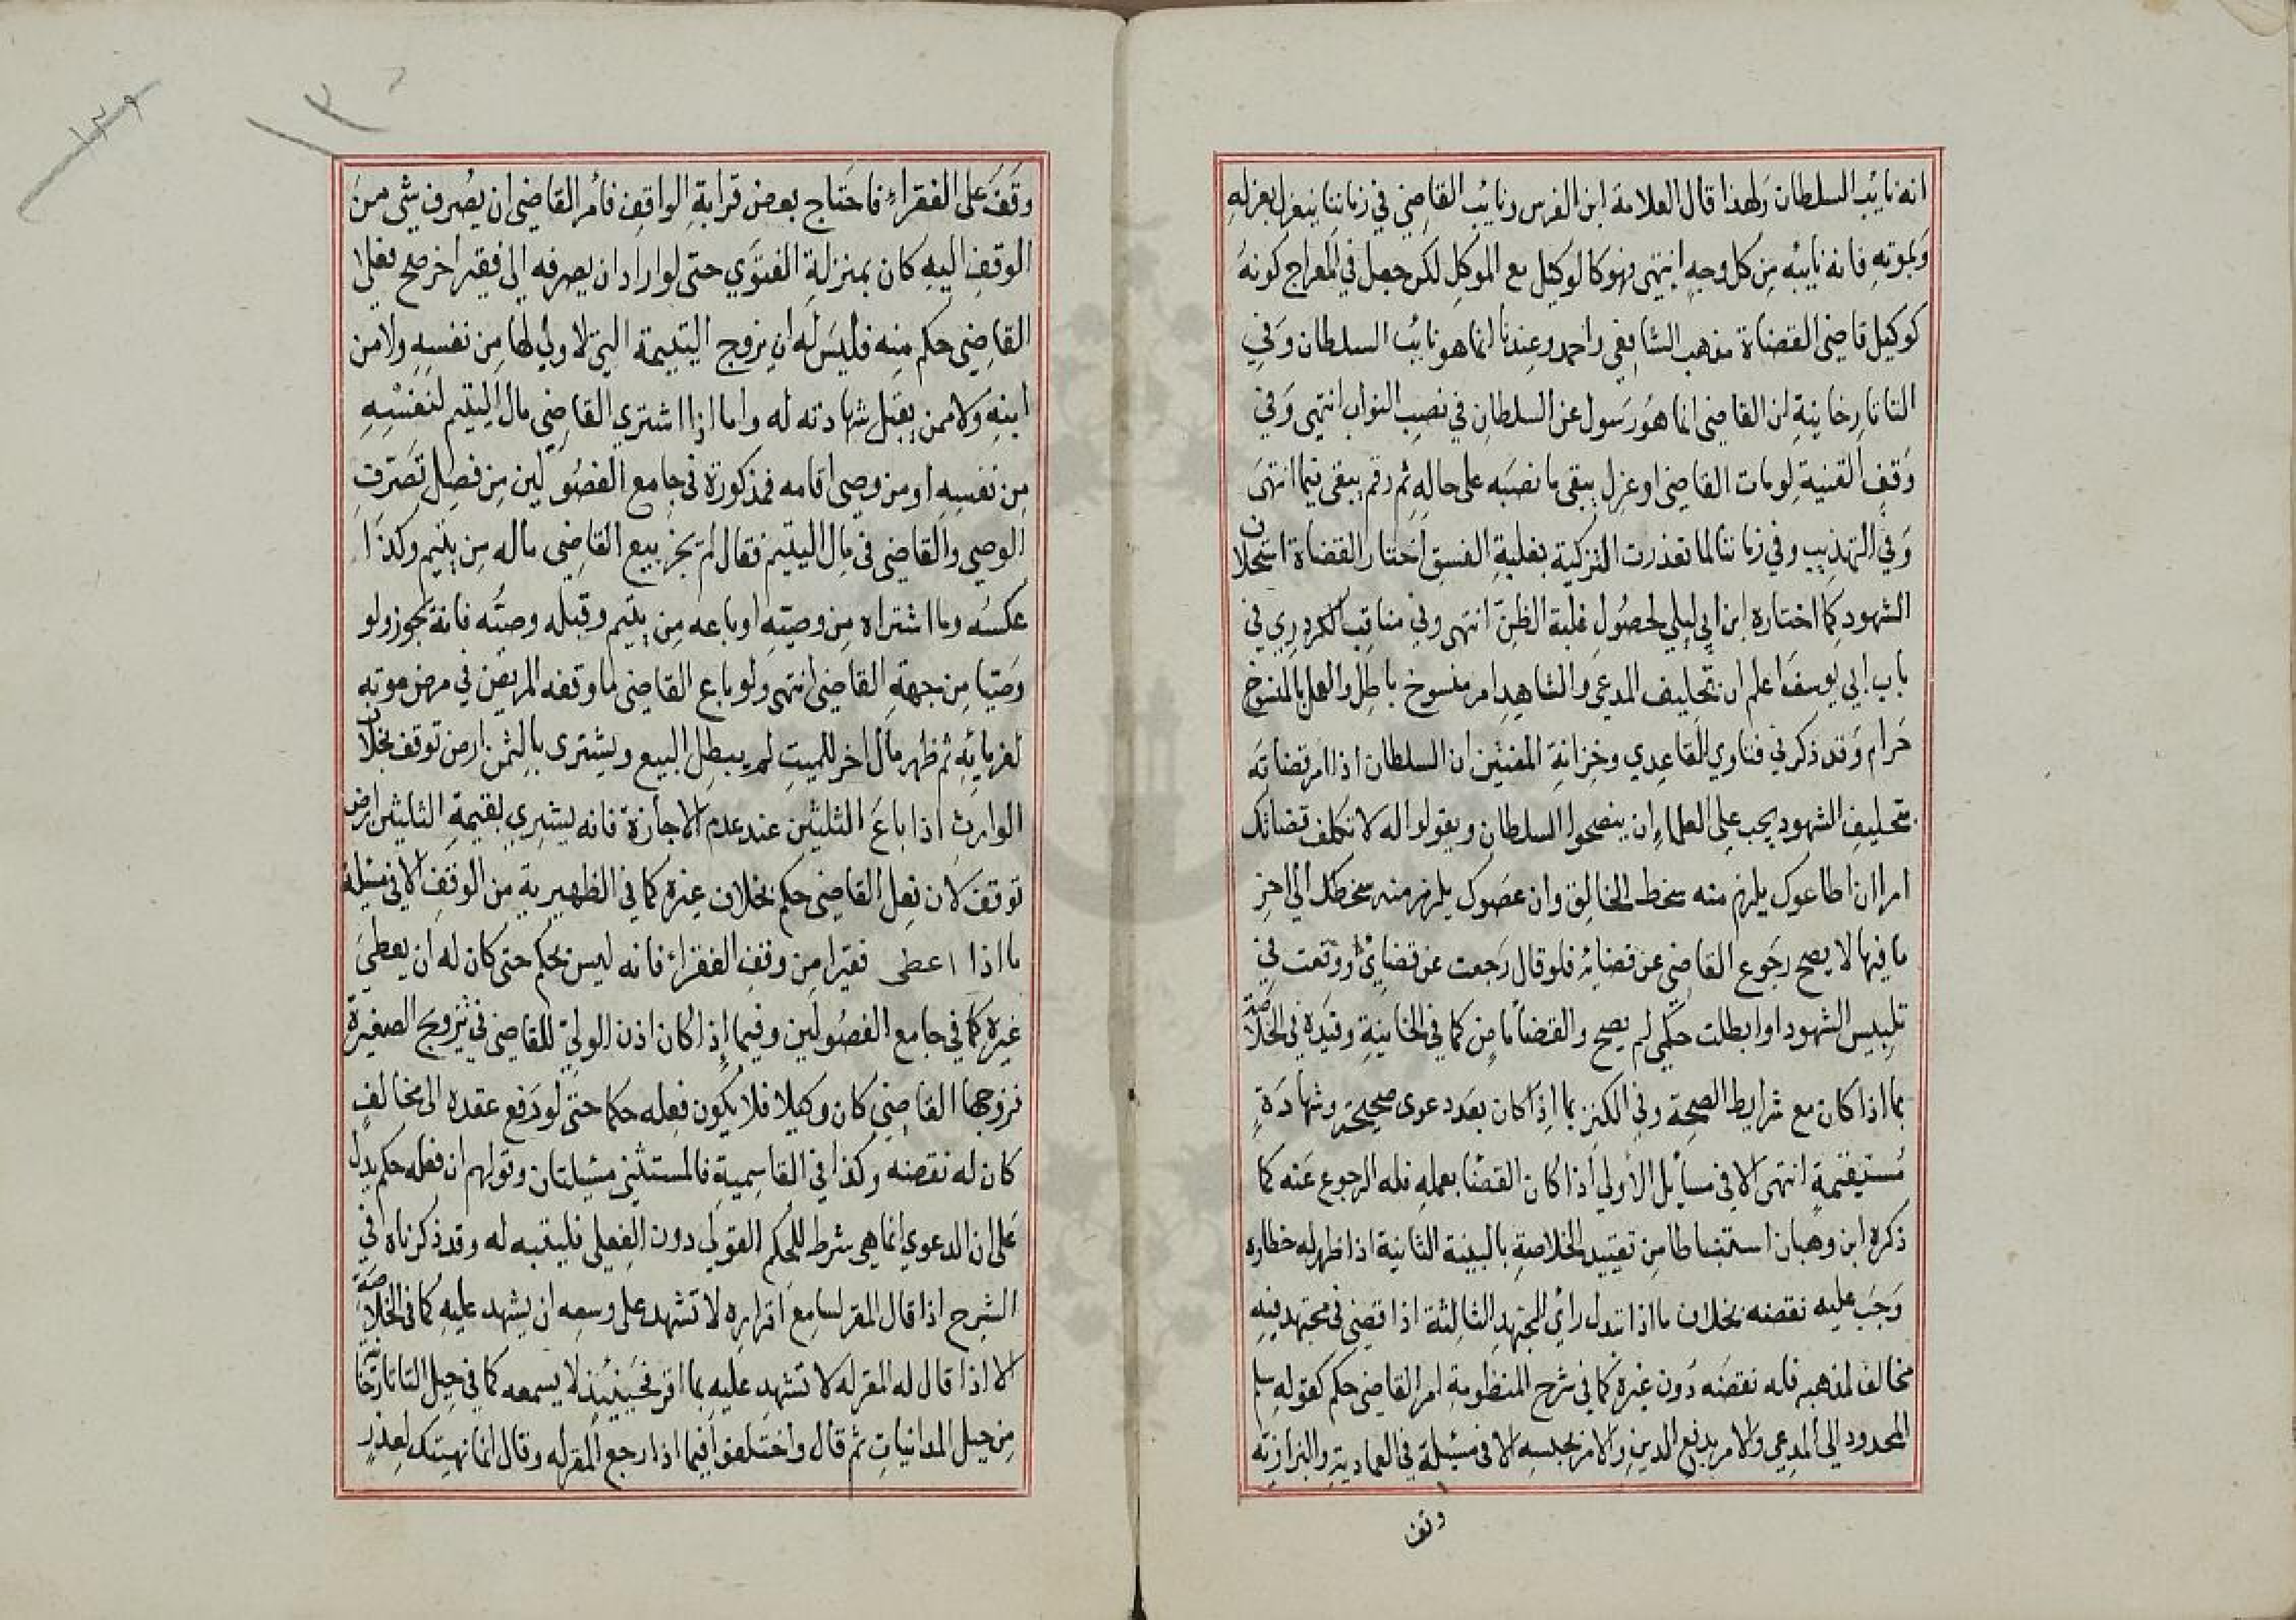 انه نايب السلطان ولهذا قال العلامة ابن الغرس ونايب القاضي في زماننا ينعزل بعزله
وبموته فانه نايبه من كل وجه انتهى فهو كالوكيل مع الموكل لكن جعل في المعراج كونه
كوكيل قاضي القضاة مذهب الشافعي واحمد وعندنا انما هو نايب السلطان وفي
التاتارخانية ان القاضي انما هو رسول عن السلطان في نصب النواب انتهى وفي
وقف القنية لو مات القاضي او عزل يبقى ما نصبه على حاله ثم رقم يبقى قيما انتهى
وفي التهذيب وفي زماننا لما تعذرت التزكية بغلبة الفسق اختار القضاة استحلان
الشهود كما اختاره ابن ابي ليلي لحصول غلبة الظن انتهى وفي مناقب الكردري في
باب ابي يوسف اعلم ان تحليف المدعي والشاهد امر منسوخ باطل والعمل بالمنسوخ
حرام وقد ذكر في فتاوي القاعدي وخزانة المفتين ان السلطان اذا امر قضاته
بتحليف الشهود يجب على العلماء ان ينصحوا السلطان ويقولوا له لا تكلف قضاتك
امرا ان اطاعوك يلزم منه سخط الخالق وان عصوك يلزم منه سخطك الي اخر
ما فيها لا يصح رجوع القاضي عن قضائه فلو قال رجعت عن قضايي او وقعت في
تلبيس الشهود او ابطلت حكمي لم يصح والقضا ماض كما في الخانية وقيده في الخلاصة
بما اذا كان مع شرايط الصحة وفي الكنز بما اذا كان بعد دعوى صحيحة وشهادة
مستقيمة انتهى الا في مسائل الاولي اذا كان القضا بعمله فله الرجوع عنه كما
ذكره ابن وهبان استنباطا من تقييد الخلاصة بالبينة الثانية اذا ظهر له خطاوه
وجب عليه نقضه بخلاف ما اذا تبدل رأي المجتهد الثالثة اذا قضى في مجتهد فيه
مخالف لمذهبه فله نقضه دون غيره كما في شرح المنظومة امر القاضي حكم كقوله سلم
المحدود الي المدعي والامر بدفع الدين والامر بحبسه الا في مسئلة في العمادية والبزازية
وقف
وقف على الفقراء فاحتاج بعض قرابة الواقف فأمر القاضي ان يصرف شي من
الوقف اليه كان بمنزلة الفتوي حتى لو اراد ان يصرفه الي فقير اخر صح فعل
القاضي حكم منه فليس له ان يزوج اليتيمة التي لا ولي لها من نفسه ولا من
ابنه ولا ممن يقبل شهادته له واما اذا اشتري القاضي مال اليتيم لنفسه
من نفسه او من وصي اقامه فمذكورة في جامع الفصولين من فصل تصرف
الوصي والقاضي في مال اليتيم فقال لم يجز بيع القاضي ماله من يتيم وكذا
عكسه وما اشتراه من وصيه او باعه من يتيم وقبله وصيه فانه يجوز ولو
وصيا من جهة القاضي انتهى ولو باع القاضي ما وقفه المريض في مرض موته
لغرمائه ثم ظهر مال اخر للميت لم يبطل البيع ويشترى بالثمن ارض توقف بخلاف
الوارث اذا باع الثلثين عند عدم الاجازة فانه يشتري بقيمة الثلثين ارض
توقف لان فعل القاضي حكم بخلاف غيره كما في الظهيرية من الوقف الا في مسئلة
ما اذا اعطى فقيرا من وقف الفقراء فانه ليس بحكم حتى كان له ان يعطي
غيره كما في جامع الفصولين وفيما اذا كان اذن الولي للقاضي في تزويج الصغيرة
فزوجها القاضي كان وكيلا فلا يكون فعله حكما حتى لو رفع عقده الى مخالف
كان له نقضه وكذا في القاسمية فالمستثنى مسئلتان وقولهم ان فعله حكم يدل
على ان الدعوي انما هي شرط للحكم القولي دون الفعلي فليتنبه له وقد ذكرناه في
الشرح اذا قال المقر لسامع اقراره لا تشهد علي وسعه ان يشهد عليه كما في الخلاصة
الا اذا قال له المقر له لا تشهد عليه بما اقر فحينئذ لا يسمعه كما في حيل التاتارخانية
من حيل المداينات ثم قال واختلفوا فيما اذا رجع المقر له وقال انما نهيتك لعذر
١٣٩
١٣٠